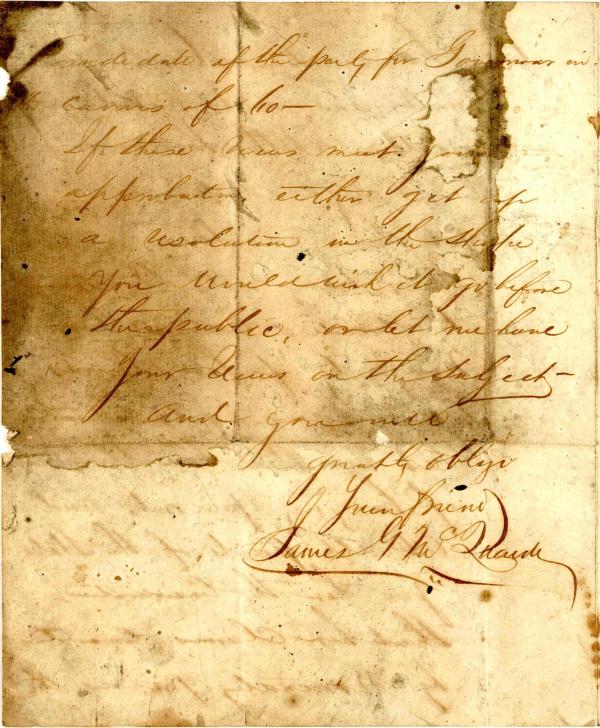 Candidate of the party for Governour in
canvas of 60—
If these views meet your
approbation either get up
a resolution in the shape
you would wish it go before
the public, or let me have
your views on the subject—
and you will
greatly oblige
Your friend
James G Mc